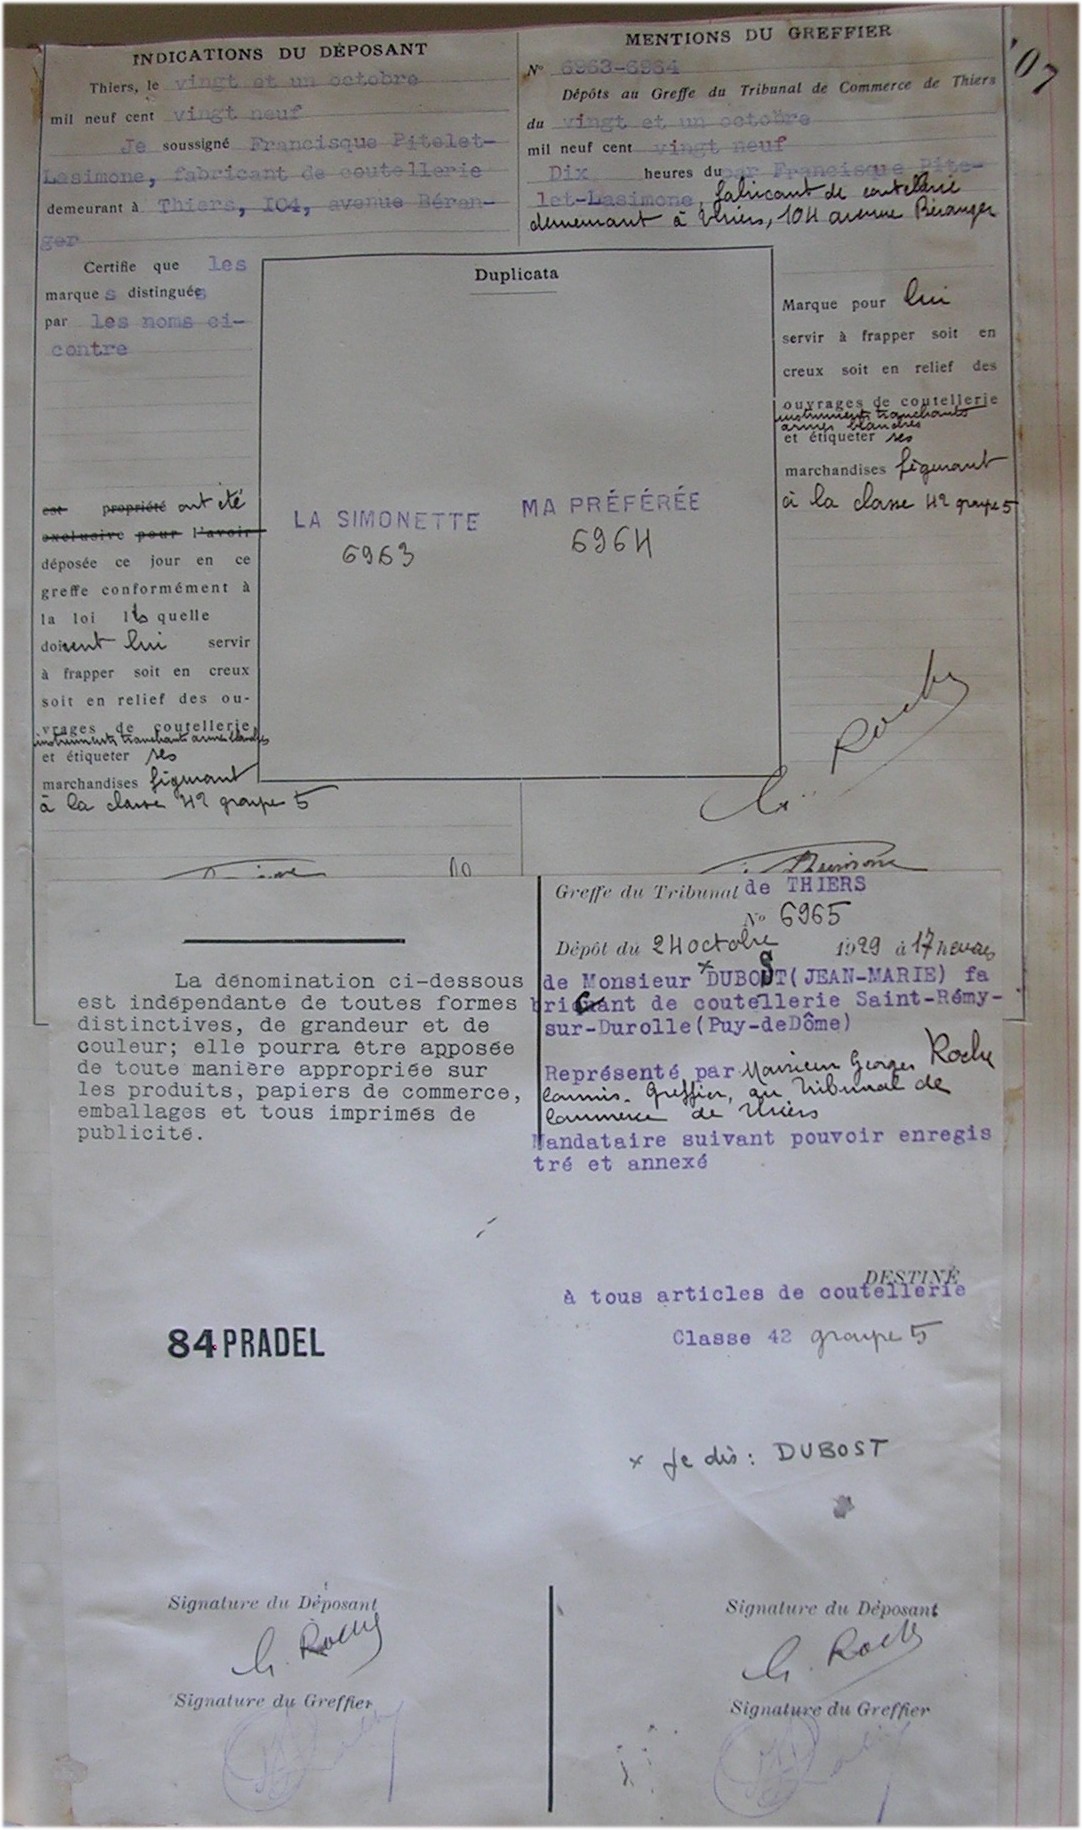 INDICATIONS DU DÉPOSANT
Thiers, le vingt et un octobre
mil neuf cent vingt neuf
Je soussigné Francisque Pitelet-
Lasimone, fabricant de coutellerie
demeurant à Thiers, 104, avenue Béran-
ger
Certifie que les
marque s distinguée s
par les noms ci-
contre
est propriété ont été
exclusive pour l'avoir
déposée ce jour en ce
greffe conformément à
la loi quelle
doivent lui servir
à frapper soit en creux
soit en relief des ou-
vrages de coutellerie
instruments tranchants armes blanches
et étiqueter ses
marchandises figurant
à la classe 42 groupe 5
MENTIONS DU GREFFIER
'07
N° 6963-6964
Dépôts au Greffe du Tribunal de Commerce de Thiers
du vingt et un octobre
mil neuf cent vingt neuf
Dix heures du par Francisque Pite-
let-Lasimone, fabricant de coutellerie
demeurant à Thiers, 104 avenue Béranger
Duplicata
LA SIMONETTE
6963
MA PRÉFÉRÉE
6964
Marque pour lui
servir à frapper soit en
creux soit en relief des
ouvrages de coutellerie
instruments tranchants
armes blanches
et étiqueter ses
marchandises figurant
à la classe 42 groupe 5
G. Roche
La dénomination ci-dessous
est indépendante de toutes formes
distinctives, de grandeur et de
couleur; elle pourra être apposée
de toute manière appropriée sur
les produits, papiers de commerce,
emballages et tous imprimés de
publicité.
84 PRADEL
Greffe du Tribunal de THIERS
N° 6965
Dépôt du 24 octobre 1929 à 17 heures
de Monsieur × DUBOST (JEAN-MARIE) fa
bricant de coutellerie Saint-Rémy-
sur-Durolle (Puy-deDôme)
Représenté par Monsieur Georges Roche
commis-Greffier, au Tribunal de
Commerce de Thiers
Mandataire suivant pouvoir enregis
tré et annexé
DESTINÉ
à tous articles de coutellerie
Classe 42 groupe 5
× Je dis : DUBOST
Signature du Déposant
G. Roche
Signature du Greffier
Signature du Déposant
G. Roche
Signature du Greffier